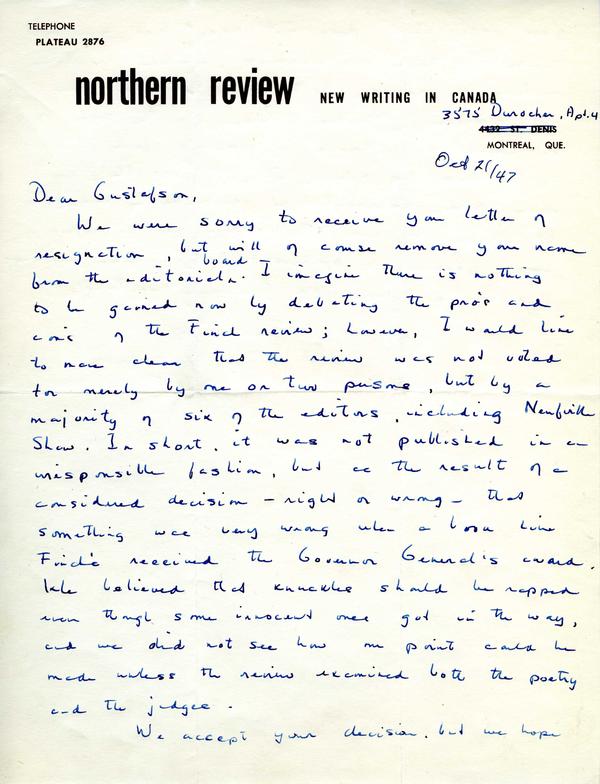 TELEPHONE
PLATEAU 2876
northern review NEW WRITING IN CANADA
3575 Durocher, Apt. 4
4432 ST. DENIS
MONTREAL, QUE.
Oct 21/47
Dear Gustafson,
We were sorry to receive your letter of
resignation, but will of course remove your name
board
from the editorial. I imagine there is nothing
to be gained now by debating the pro's and
con's of the Finch review; however, I would like
to make clear that the review was not voted
for merely by one or two persons, but by a
majority of six of the editors, including Neufville
Shaw. In short, it was not published in an
irresponsible fashion, but as the result of a
considered decision – right or wrong – that
something was very wrong when a book like
Finch's received the Governor General's award.
We believed that knuckles should be rapped
even though some innocent ones got in the way,
and we did not see how our point could be
made unless the review examined both the poetry
and the judges.
We accept your decision, but we hope